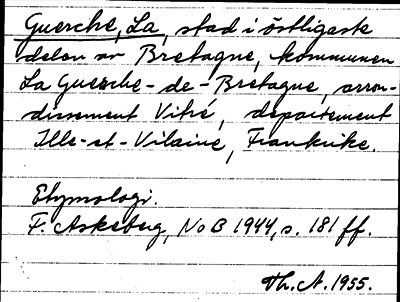 Guerche, La, stad i östligaste
delen av Bretagne, kommunen
La Guerche-de-Bretagne, arron-
dissement Vitré, departement
Ille-et-Vilaine, Frankrike.
Etymologi.
F. Askeberg, NoB 1944, s. 181 ff.
Th. A. 1955.